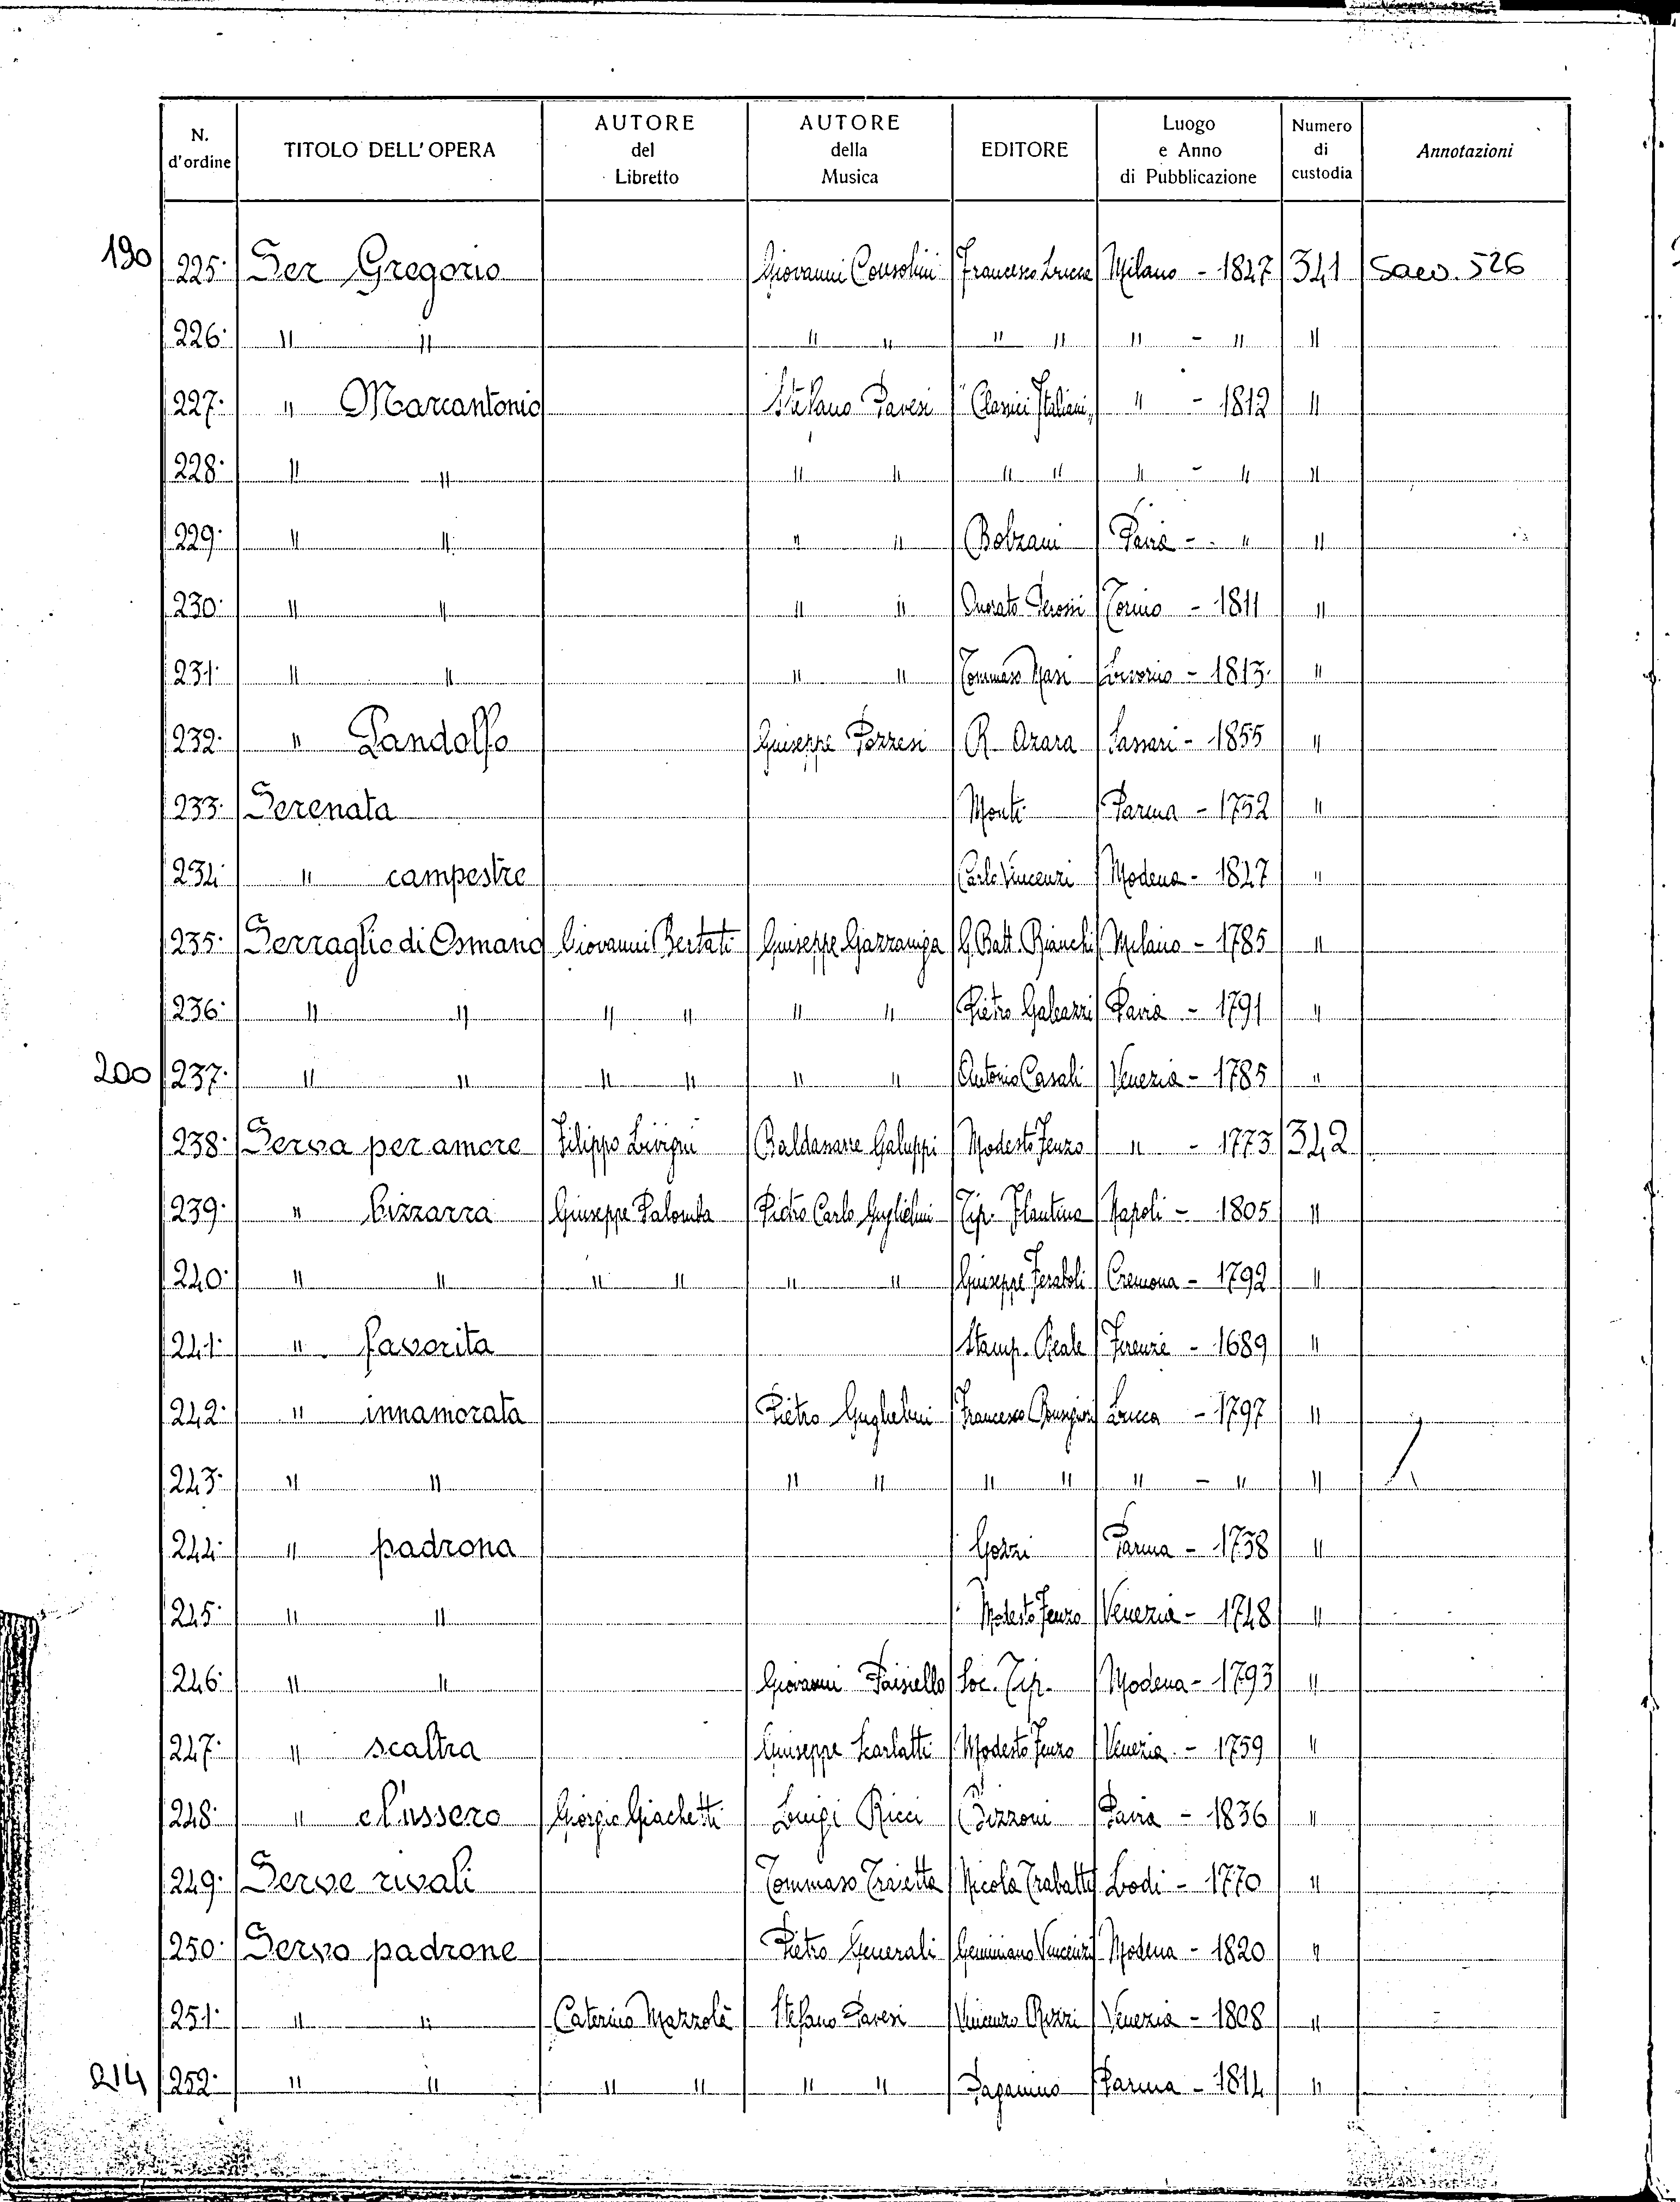 N. d'ordine TITOLO DELL'OPERA AUTORE del Libretto AUTORE della Musica EDITORE Luogo e Anno di Pubblicazione Numero di custodia Annotazioni
190 225. Ser Gregorio Giovanni Consolini Francesco Lucca Milano - 1847 341 Saev. 526
226. " " " " " " " - " "
227. " Marcantonio Stefano Pavesi "Classici Italiani" " - 1812 "
228. " " " " " " " - " "
229. " " " " Bolzani Pavia - " "
230. " " " " Onorato Derossi Torino - 1811 "
231. " " " " Tommaso Masi Livorno - 1813. "
232. " Pandolfo Giuseppe Pozzesi R. Azara Sassari - 1855 "
233. Serenata Monti Parma - 1752 "
234. " campestre Carlo Vincenzi Modena - 1847 "
235. Serraglio di Osmano Giovanni Bertati Giuseppe Gazzaniga G. Batt. Bianchi Milano - 1785 "
236. " " " " " " Pietro Galeazzi Pavia - 1791 "
200 237. " " " " " " Antonio Casali Venezia - 1785 "
238. Serva per amore Filippo Livigni Baldassare Galuppi Modesto Fenzo " - 1773 342
239. " bizzarra Giuseppe Palomba Pietro Carlo Guglielmi Tip. Flautina Napoli - 1805 "
240. " " " " " " Giuseppe Feraboli Cremona - 1792 "
241. " favorita Stamp. Reale Firenze - 1689 "
242. " innamorata Pietro Guglielmi Francesco Lucca - 1797 "
243. " " " " " " " - " "
244. " padrona Gozzi Parma - 1738 "
245. " " Modesto Fenzo Venezia - 1748 "
246. " " Giovanni Paisiello Soc. Tip. Modena - 1793 "
247. " scaltra Giuseppe Scarlatti Modesto Fenzo Venezia - 1759 "
248. " e l'ussero Giorgio Giachetti Luigi Ricci Bizzoni Pavia - 1836 "
249. Serve rivali Tommaso Traietta Nicola Trabatti Lodi - 1770 "
250. Servo padrone Pietro Generali Geminiano Vincenzi Modena - 1820 "
251. " " Caterino Mazzolà Stefano Pavesi Vincenzo Rizzi Venezia - 1808 "
214 252. " " " " " " Paganino Parma - 1814 "